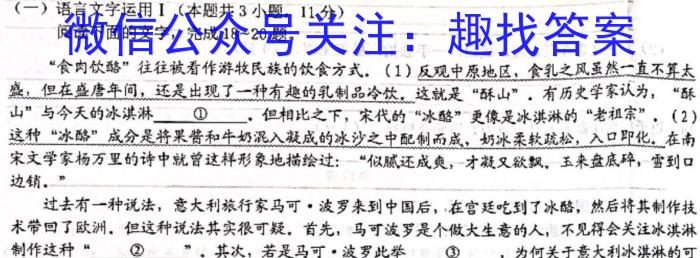 (一)语言文字运用Ⅰ(本题共3小题,11分)
阅读下面的文字,完成18~20题。
微信公众号关注:趣找答案
“食肉饮酪”往往被看作游牧民族的饮食方式。(1)反观中原地区,食乳之风虽然一直不算太
盛,但在盛唐年间,还是出现了一种有趣的乳制品冷饮。这就是“酥山”。有历史学家认为,“酥
山”与今天的冰淇淋 ① 。但相比之下,宋代的“冰酪”更像是冰淇淋的“老祖宗”。(2)
这种“冰酪”成分是将果酱和牛奶混入凝成的冰沙之中配制而成,奶冰柔软疏松,入口即化。在南
宋文学家杨万里的诗中就曾这样形象地描绘过:“似腻还成爽,才凝又欲飘。玉来盘底碎,雪到口
边销。”
过去有一种说法,意大利旅行家马可·波罗来到中国后,在宫廷吃到了冰酪,然后将其制作技
术带回了欧洲。但这种说法其实很可疑。首先,马可波罗是个做大生意的人,不见得会关注冰淇淋
制作这种“ ② ”。其次,若是马可·波罗此举 ③ ,为何关于意大利冰淇淋的可